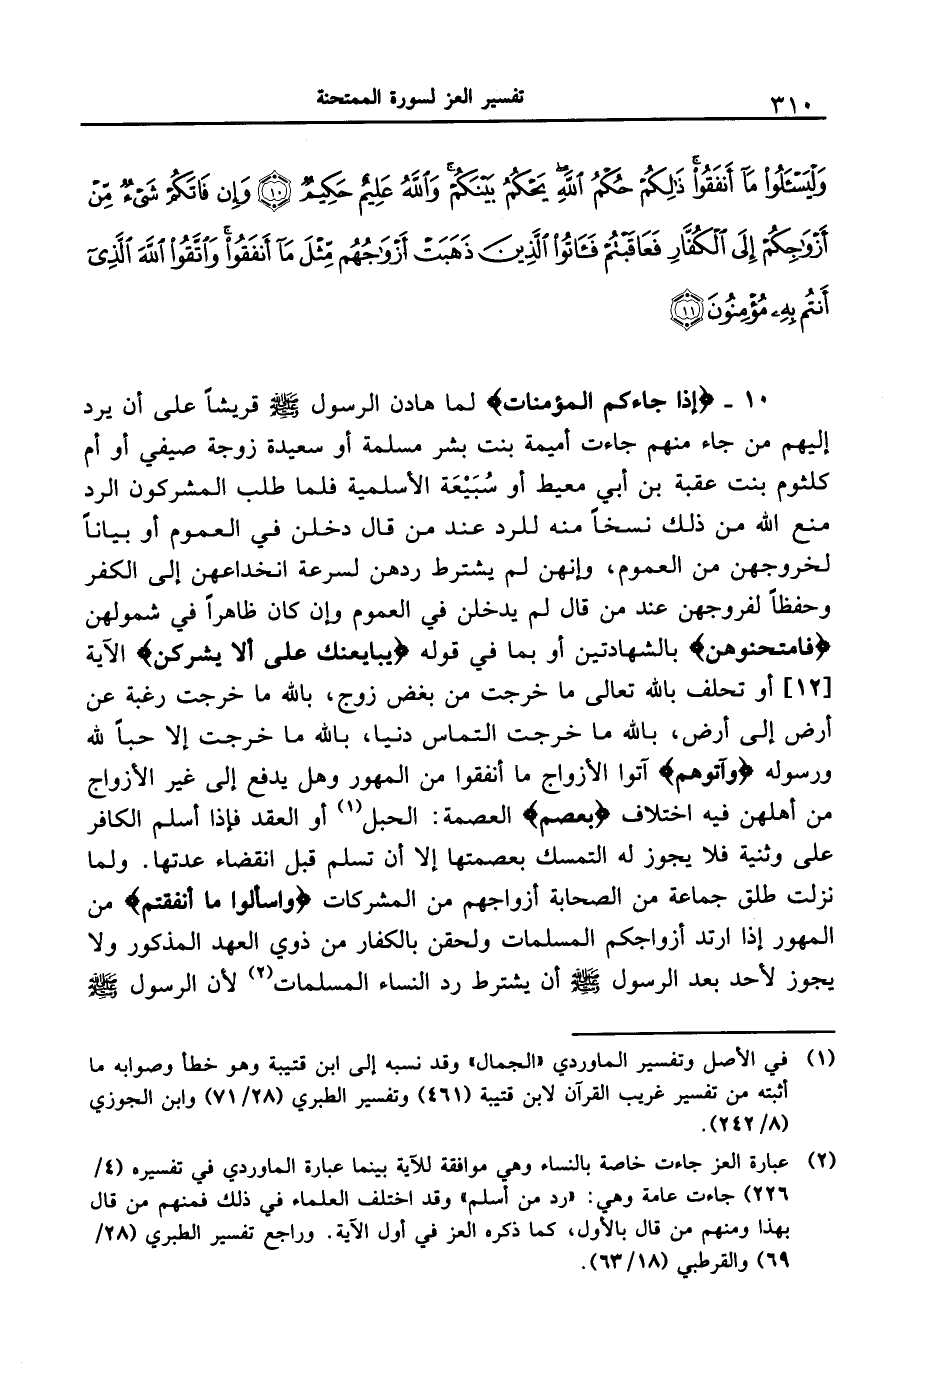 ٣١٠ تفسير العز لسورة الممتحنة
وَلْيَسْـَٔلُوا۟ مَآ أَنفَقُوا۟ ۚ ذَٰلِكُمْ حُكْمُ ٱللَّهِ ۖ يَحْكُمُ بَيْنَكُمْ ۚ وَٱللَّهُ عَلِيمٌ حَكِيمٌ ۝١٠ وَإِن فَاتَكُمْ شَىْءٌ مِّنْ
أَزْوَٰجِكُمْ إِلَى ٱلْكُفَّارِ فَعَاقَبْتُمْ فَـَٔاتُوا۟ ٱلَّذِينَ ذَهَبَتْ أَزْوَٰجُهُم مِّثْلَ مَآ أَنفَقُوا۟ ۚ وَٱتَّقُوا۟ ٱللَّهَ ٱلَّذِىٓ
أَنتُم بِهِۦ مُؤْمِنُونَ ۝١١
١٠ - ﴿إذا جاءكم المؤمنات﴾ لما هادن الرسول ﷺ قريشاً على أن يرد
إليهم من جاء منهم جاءت أميمة بنت بشر مسلمة أو سعيدة زوجة صيفي أو أم
كلثوم بنت عقبة بن أبي معيط أو سُبَيْعَة الأسلمية فلما طلب المشركون الرد
منع الله من ذلك نسخاً منه للرد عند من قال دخلن في العموم أو بياناً
لخروجهن من العموم، وإنهن لم يشترط ردهن لسرعة انخداعهن إلى الكفر
وحفظاً لفروجهن عند من قال لم يدخلن في العموم وإن كان ظاهراً في شمولهن
﴿فامتحنوهن﴾ بالشهادتين أو بما في قوله ﴿يبايعنك على ألا يشركن﴾ الآية
[١٢] أو تحلف بالله تعالى ما خرجت من بغض زوج، بالله ما خرجت رغبة عن
أرض إلى أرض، بالله ما خرجت التماس دنيا، بالله ما خرجت إلا حباً لله
ورسوله ﴿وآتوهم﴾ آتوا الأزواج ما أنفقوا من المهور وهل يدفع إلى غير الأزواج
من أهلهن فيه اختلاف ﴿بعصم﴾ العصمة: الحبل(١) أو العقد فإذا أسلم الكافر
على وثنية فلا يجوز له التمسك بعصمتها إلا أن تسلم قبل انقضاء عدتها. ولما
نزلت طلق جماعة من الصحابة أزواجهم من المشركات ﴿واسألوا ما أنفقتم﴾ من
المهور إذا ارتد أزواجكم المسلمات ولحقن بالكفار من ذوي العهد المذكور ولا
يجوز لأحد بعد الرسول ﷺ أن يشترط رد النساء المسلمات(٢) لأن الرسول ﷺ
(١) في الأصل وتفسير الماوردي «الجمال» وقد نسبه إلى ابن قتيبة وهو خطأ وصوابه ما
أثبته من تفسير غريب القرآن لابن قتيبة (٤٦١) وتفسير الطبري (٢٨/٧١) وابن الجوزي
(٨/٢٤٢).
(٢) عبارة العز جاءت خاصة بالنساء وهي موافقة للآية بينما عبارة الماوردي في تفسيره (٤/
٢٢٦) جاءت عامة وهي: «رد من أسلم» وقد اختلف العلماء في ذلك فمنهم من قال
بهذا ومنهم من قال بالأول، كما ذكره العز في أول الآية. وراجع تفسير الطبري (٢٨/
٦٩) والقرطبي (١٨/٦٣).